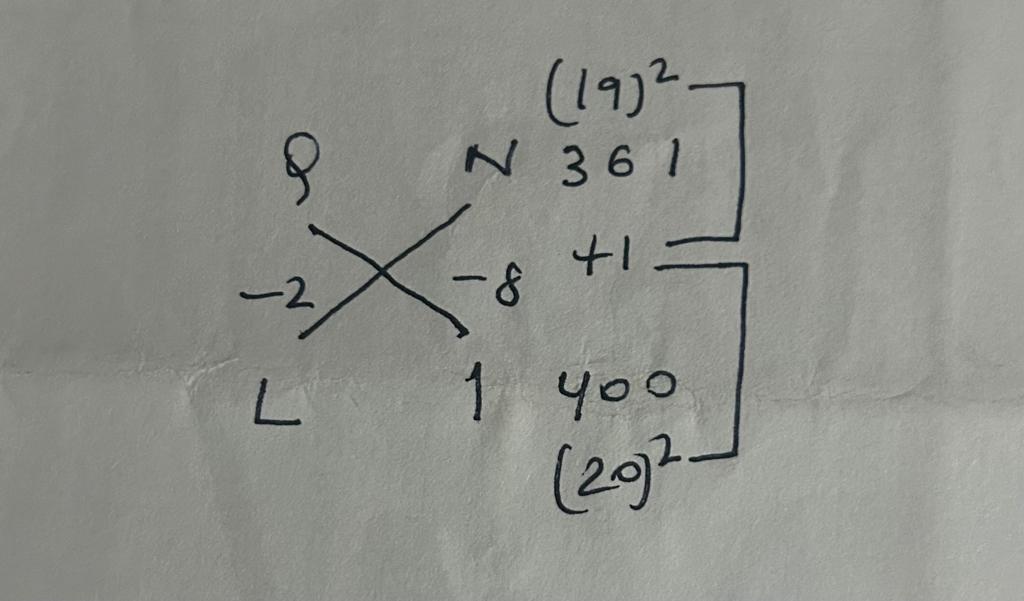 (19)²
P N 361
-2 -8 +1
L 1 400
(20)²